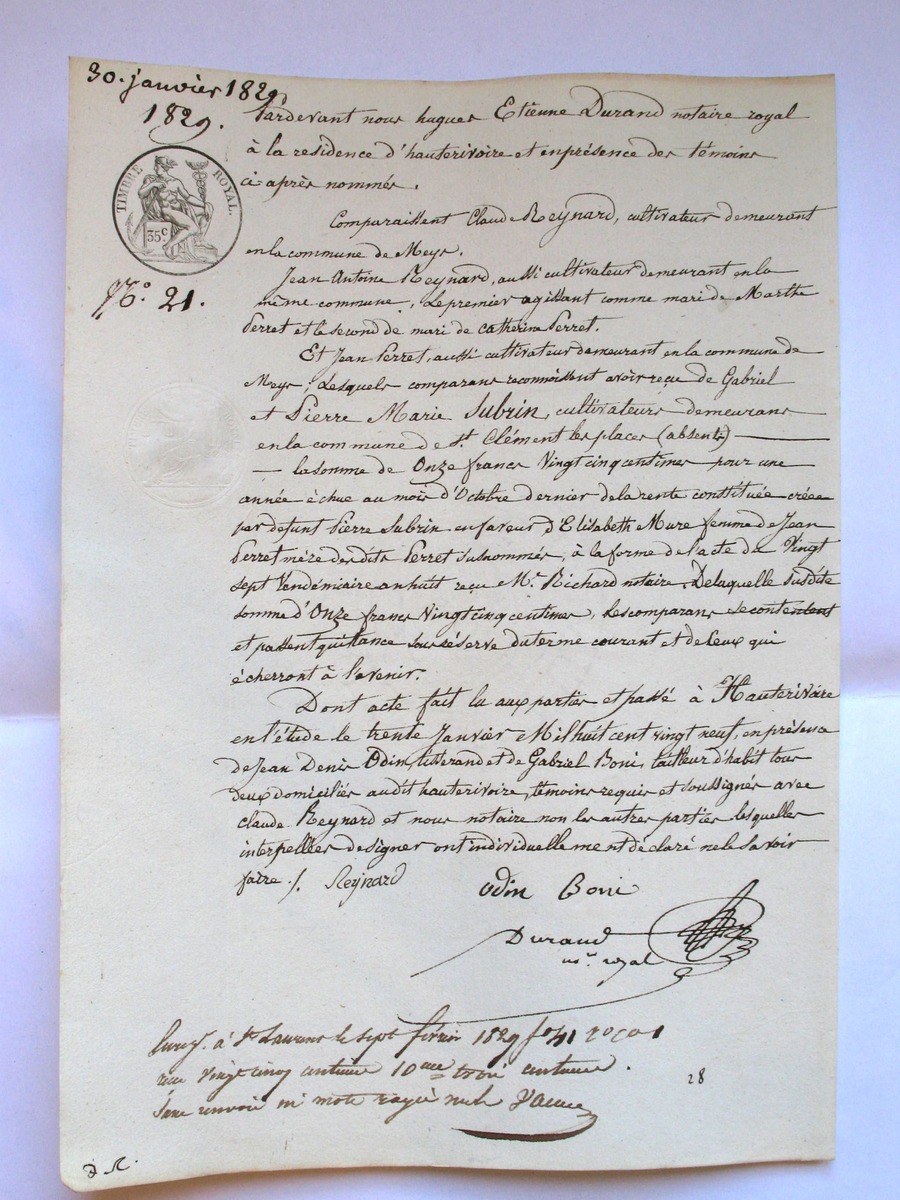 30. janvier 1829
1829.
TIMBRE ROYAL.
35 c.
N.o 21.
Pardevant nous hugues Etienne Durand notaire royal
à la residence d'hauterivoire et en présence des témoins
ci après nommés.
Comparaissent Claude Reynard, cultivateur demeurant
en la commune de Meys.
Jean Antoine Reynard, aussi cultivateur demeurant en la
même commune, le premier agissant comme mari de Marthe
Perret et le second de mari de Catherine Perret.
Et Jean Perret, aussi cultivateur demeurant en la commune de
Meys; Lesquels comparans reconnoissent avoir reçu de Gabriel
et Pierre Marie Subrin, cultivateurs demeurans
en la commune de St. Clément les places (absents)
la somme de Onze francs Vingt cinq centimes pour une
année échue au mois d'Octobre dernier de la rente constituée créée
par defunt Pierre Subrin en faveur d'Elisabeth Mure femme de Jean
Perret mére desdits Perret susnommés, à la forme de l'acte du Vingt
sept Vendémiaire an huit reçu Me. Richard notaire. De laquelle susdite
somme d'Onze francs Vingt cinq centimes, les comparans se contentent
et passent quittance sous réserve du terme courant et de ceux qui
écherront à l'avenir.
Dont acte fait lu aux parties et passé à Hauterivoire
en l'étude le trente Janvier Mil huit cent vingt neuf, en présence
de Jean Denis Odin, tisserand et de Gabriel Boni, tailleur d'habit tous
deux domiciliés audit hauterivoire, témoins requis et soussignés avec
claude Reynard et nous notaire non les autres parties lesquelles
interpellées de signer ont individuellement déclaré ne le savoir
faire ./. Reynard
Odin Boni
Durand
nre. royal
Enreg. à St Laurent le sept février 1829 fo 41
reçu vingt cinq centimes 10me trois centimes.
Sans renvoi ni mots rayés nuls
28